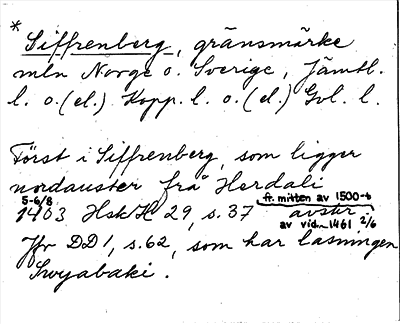 *
Siffrenberg, gränsmärke
mln Norge o. Sverige, Jämtl.
l. o. (el.) Kopp. l. o. (el.) Gvl. l.
Först i Siffrenberg, som ligger
nordauster frå Herdali
5-6/8 fr. mitten av 1500-t
1403 HskH 29, s. 37 avskr.
av vid. 1461 2/6
Jfr DD 1, s. 62, som har läsningen
Swyabaki.